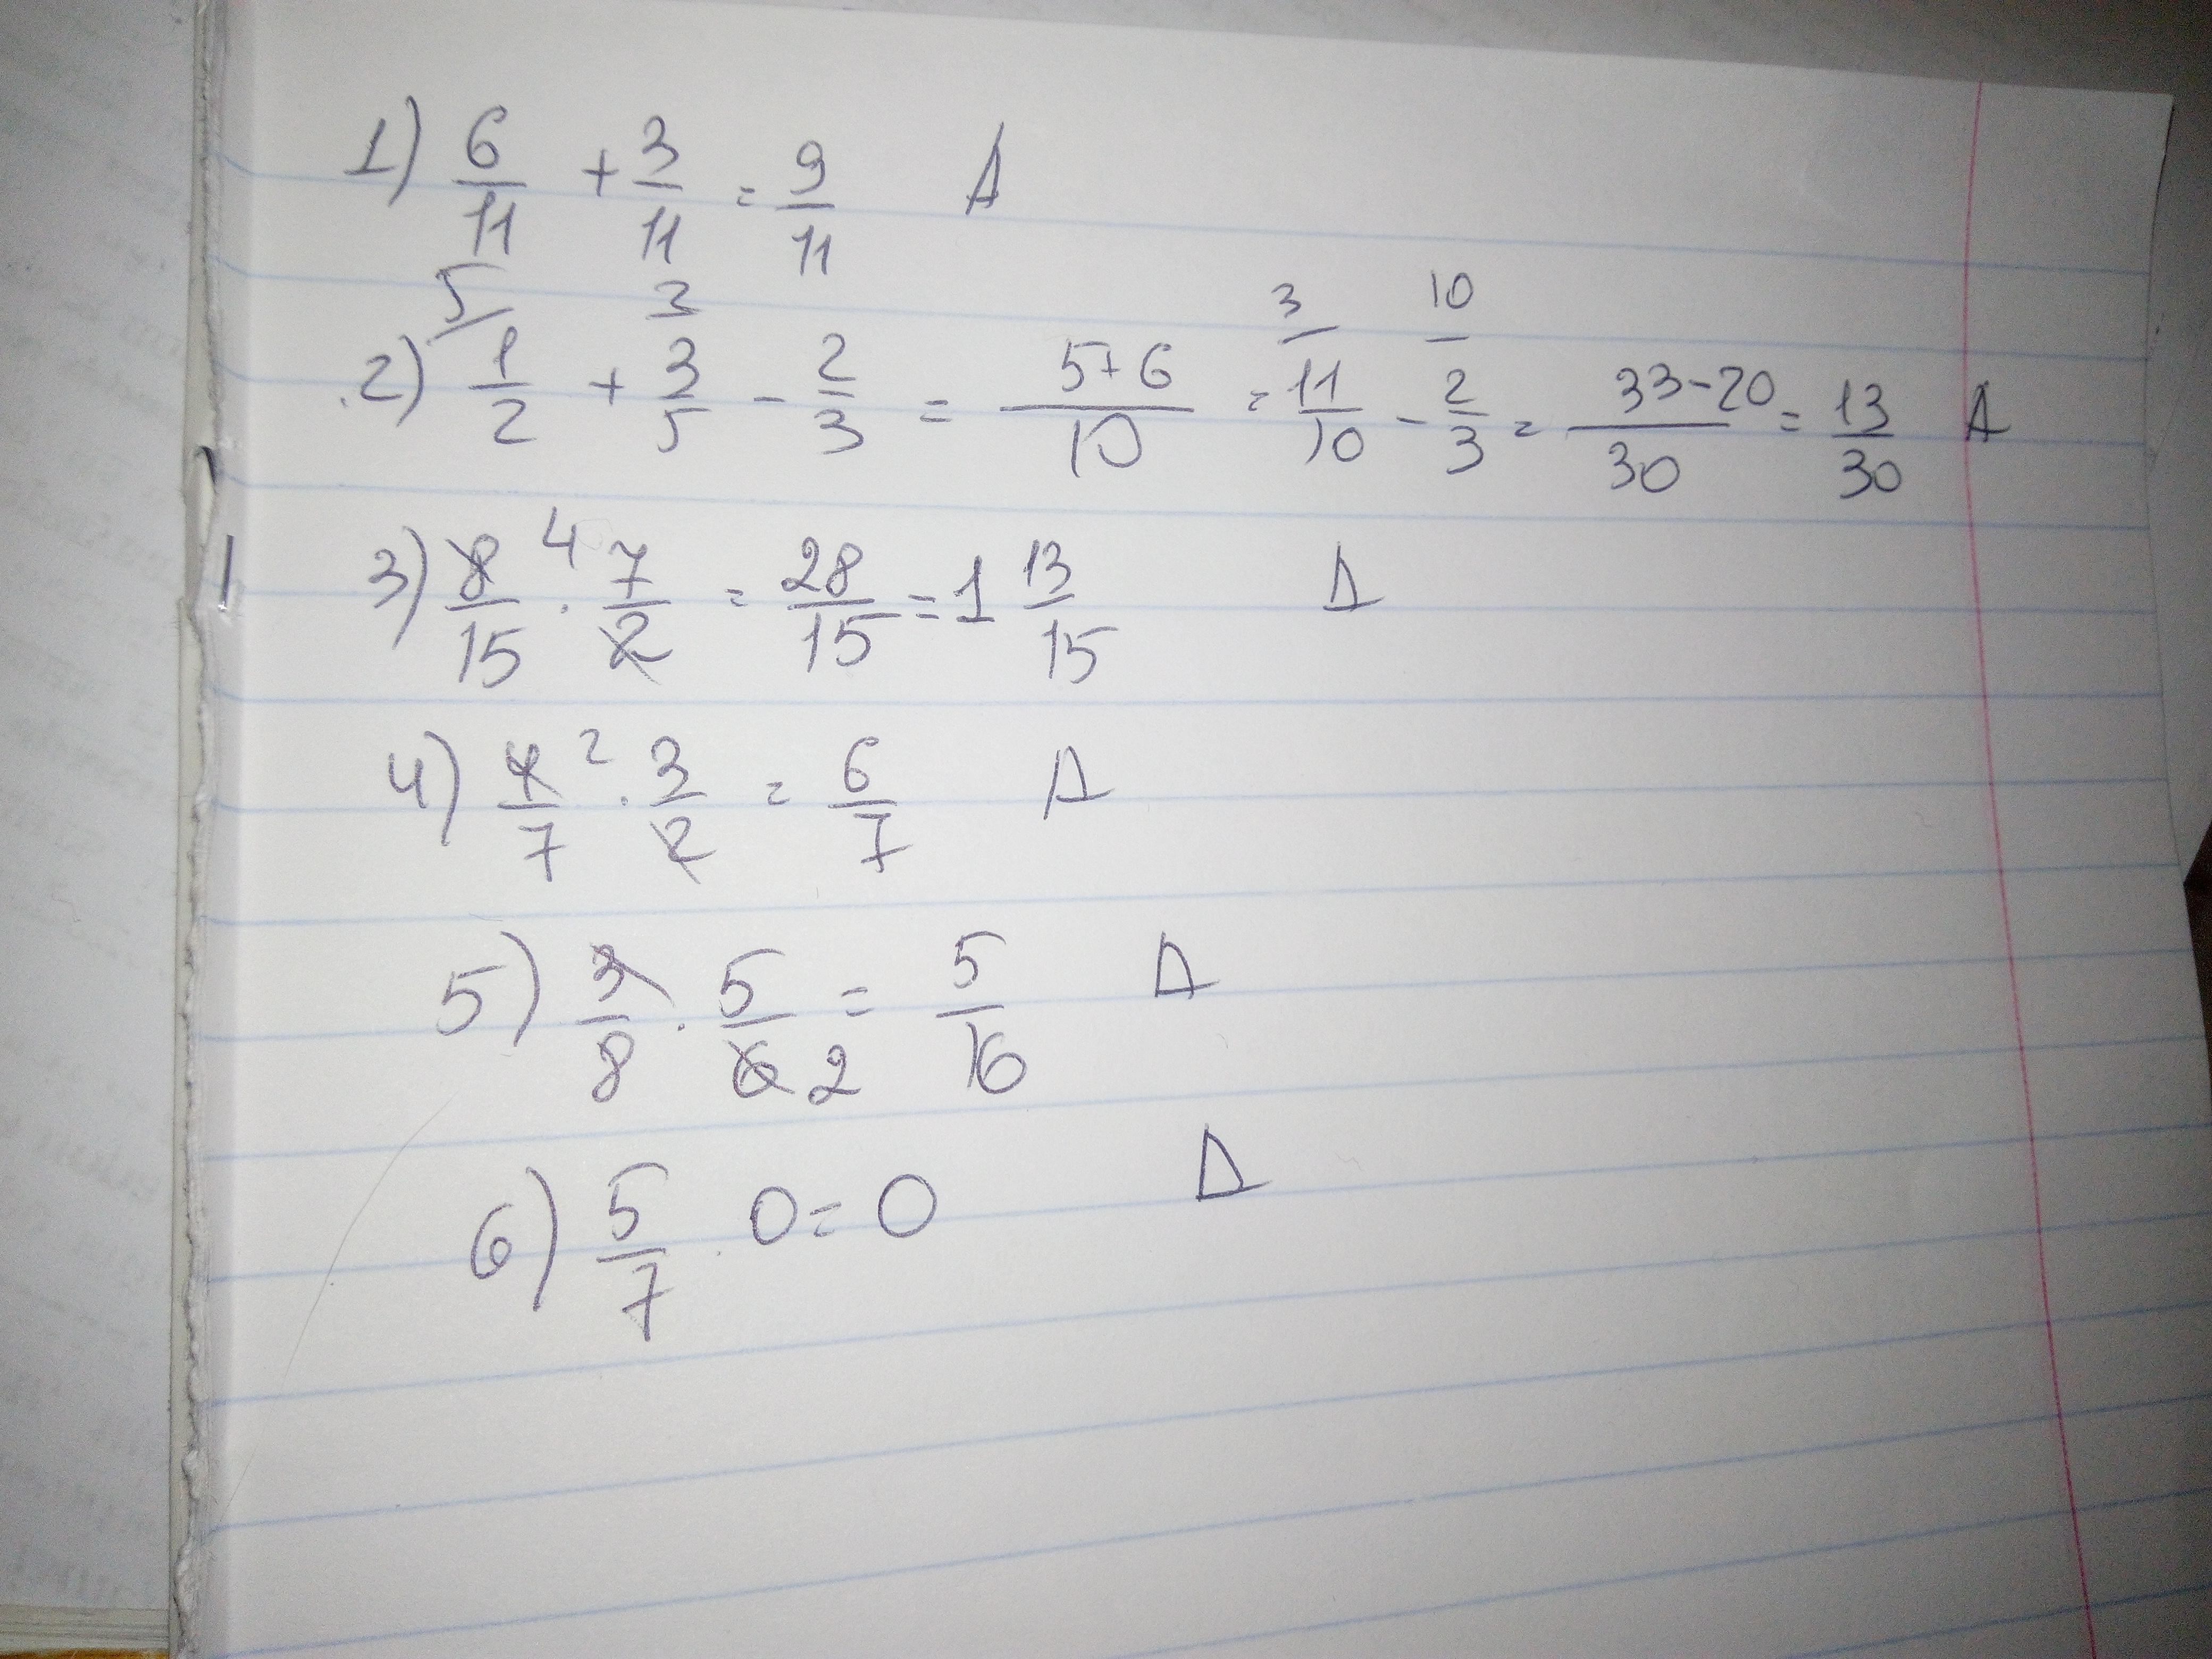 1) 6/11 + 3/11 = 9/11 A
5 3
2) 1/2 + 3/5 - 2/3 = 5+6/10 = 3 11/10 - 10 2/3 = 33-20/30 = 13/30 A
3) 8/15 4 · 7/2 = 28/15 = 1 13/15 Д
4) 4/7 2 · 3/2 = 6/7 A
5) 3/8 · 5/6 2 = 5/16 Д
6) 5/7 · 0 = 0 Д